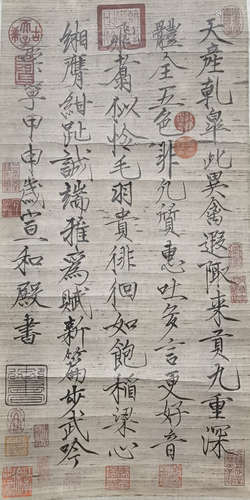 天産乾皋此異禽遐陬來貢九重深
體全五色非凡質惠吐多言更好音
飛翥似怜毛羽貴徘徊如飽稻粱心
緗膺紺趾誠端雅爲賦新篇步武吟
甲申歲宣和殿書